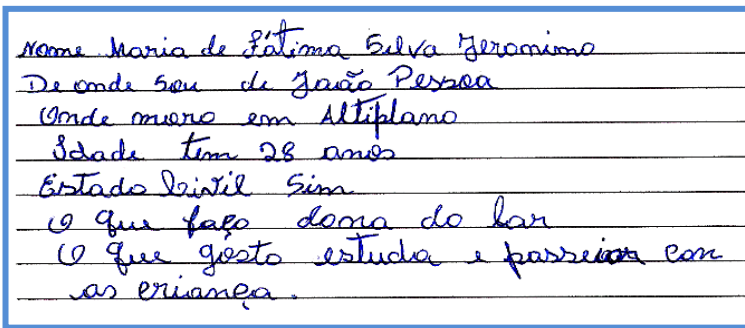 Nome Maria de Fátima Silva Jeronimo
De onde sou de João Pessoa
Onde moro em Altiplano
Idade tem 28 anos
Estado Civil Sim
O que faço dona do lar
O que gosto estuda e passeior con
as criança.